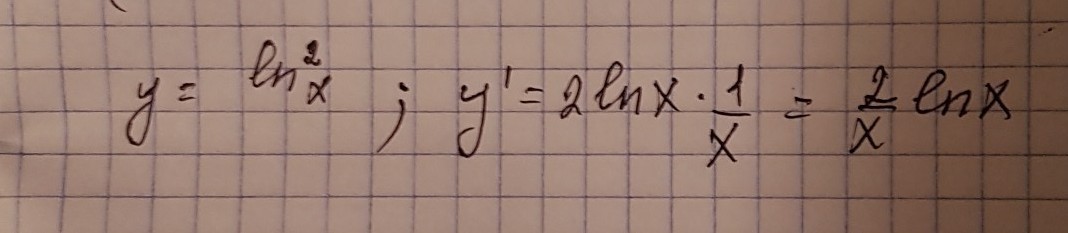 y = ln²x ; y' = 2 ln x · 1/x = 2/x ln x